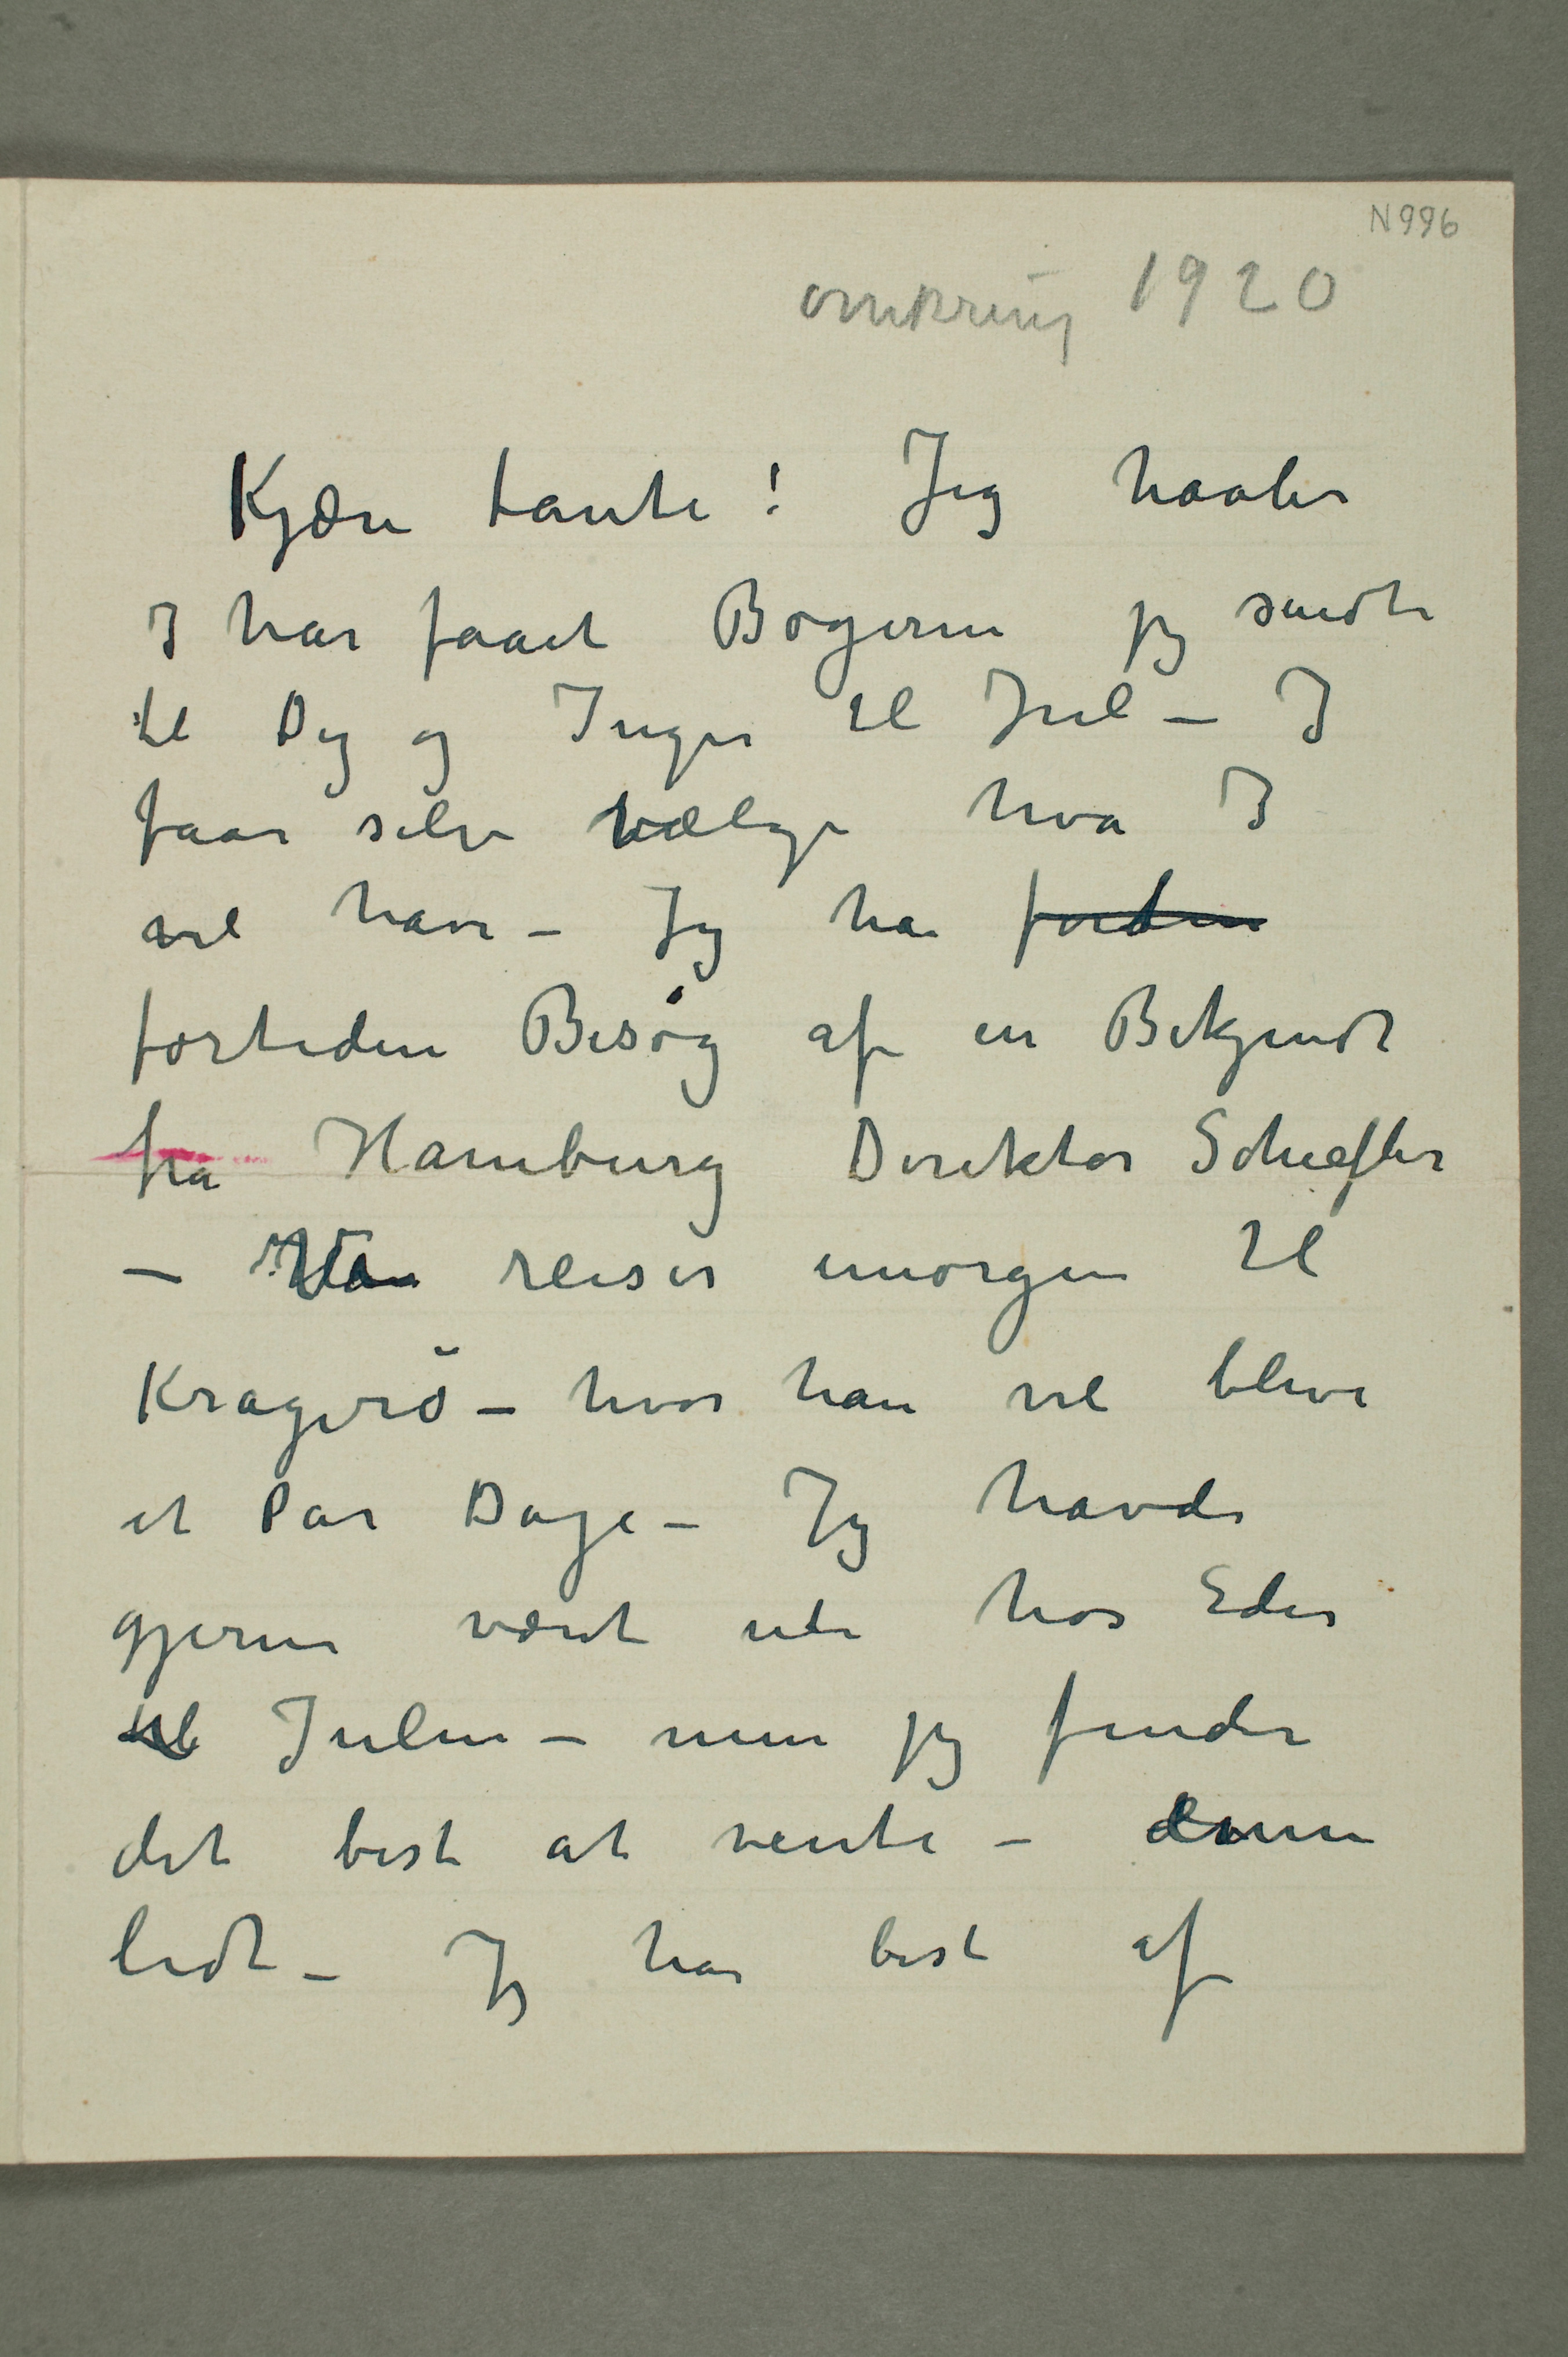 N996
omkring 1920
Kjære tante! Jeg haaber
I har faaet Bøgerne jeg sendte
til Dig og Inger til Jul – I
faar selv vælge hva I
vil have – Jeg har
fortiden Besøg af en Bekjendt
fra Hamburg Direktør Schiefler
– Han reiser imorgen til
Kragerö – hvor han vil blive
et Par Dage – Jeg havde
gjerne været ude hos Eder
til Julen – men jeg finder
det best at vente –
lidt – Jeg har best af